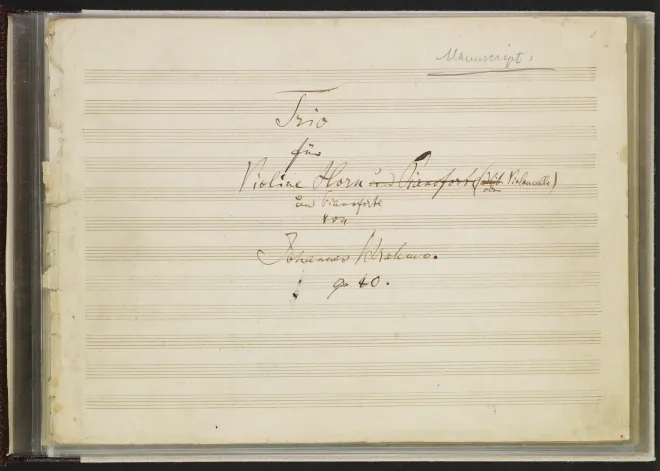 Manuscript.
Trio
für
Violine Horn und Pianoforte (oder Violoncello)
und Pianoforte
von
Johannes Brahms.
op 40.